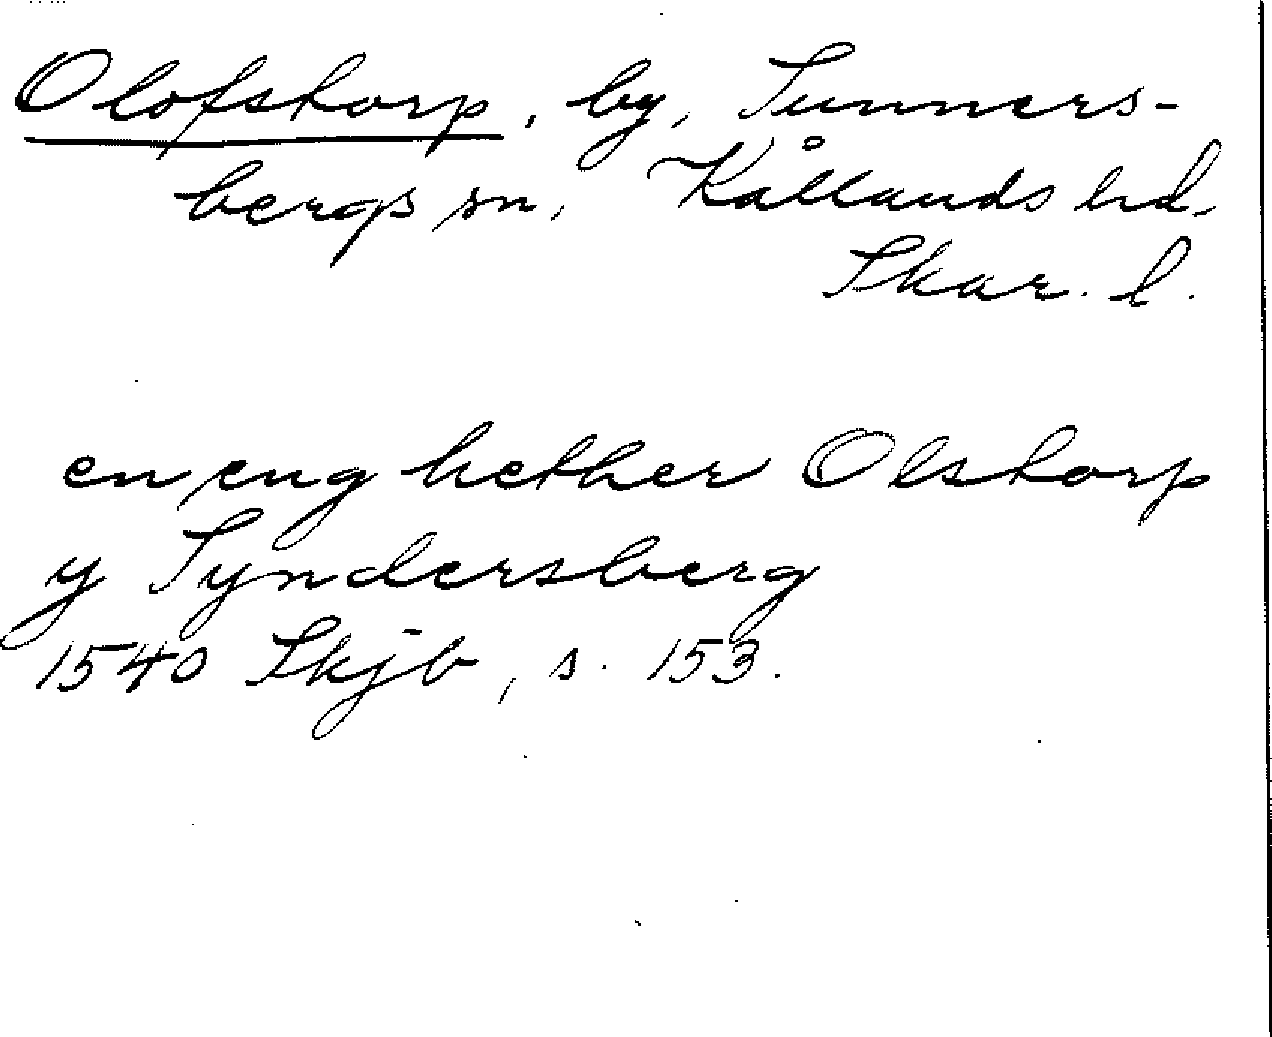 Olofstorp, by, Sunners-
bergs sn, Kållands hd.
Skar. l.
en eng hether Olstorp
y Syndersberg
1540 Skjb, s. 153.